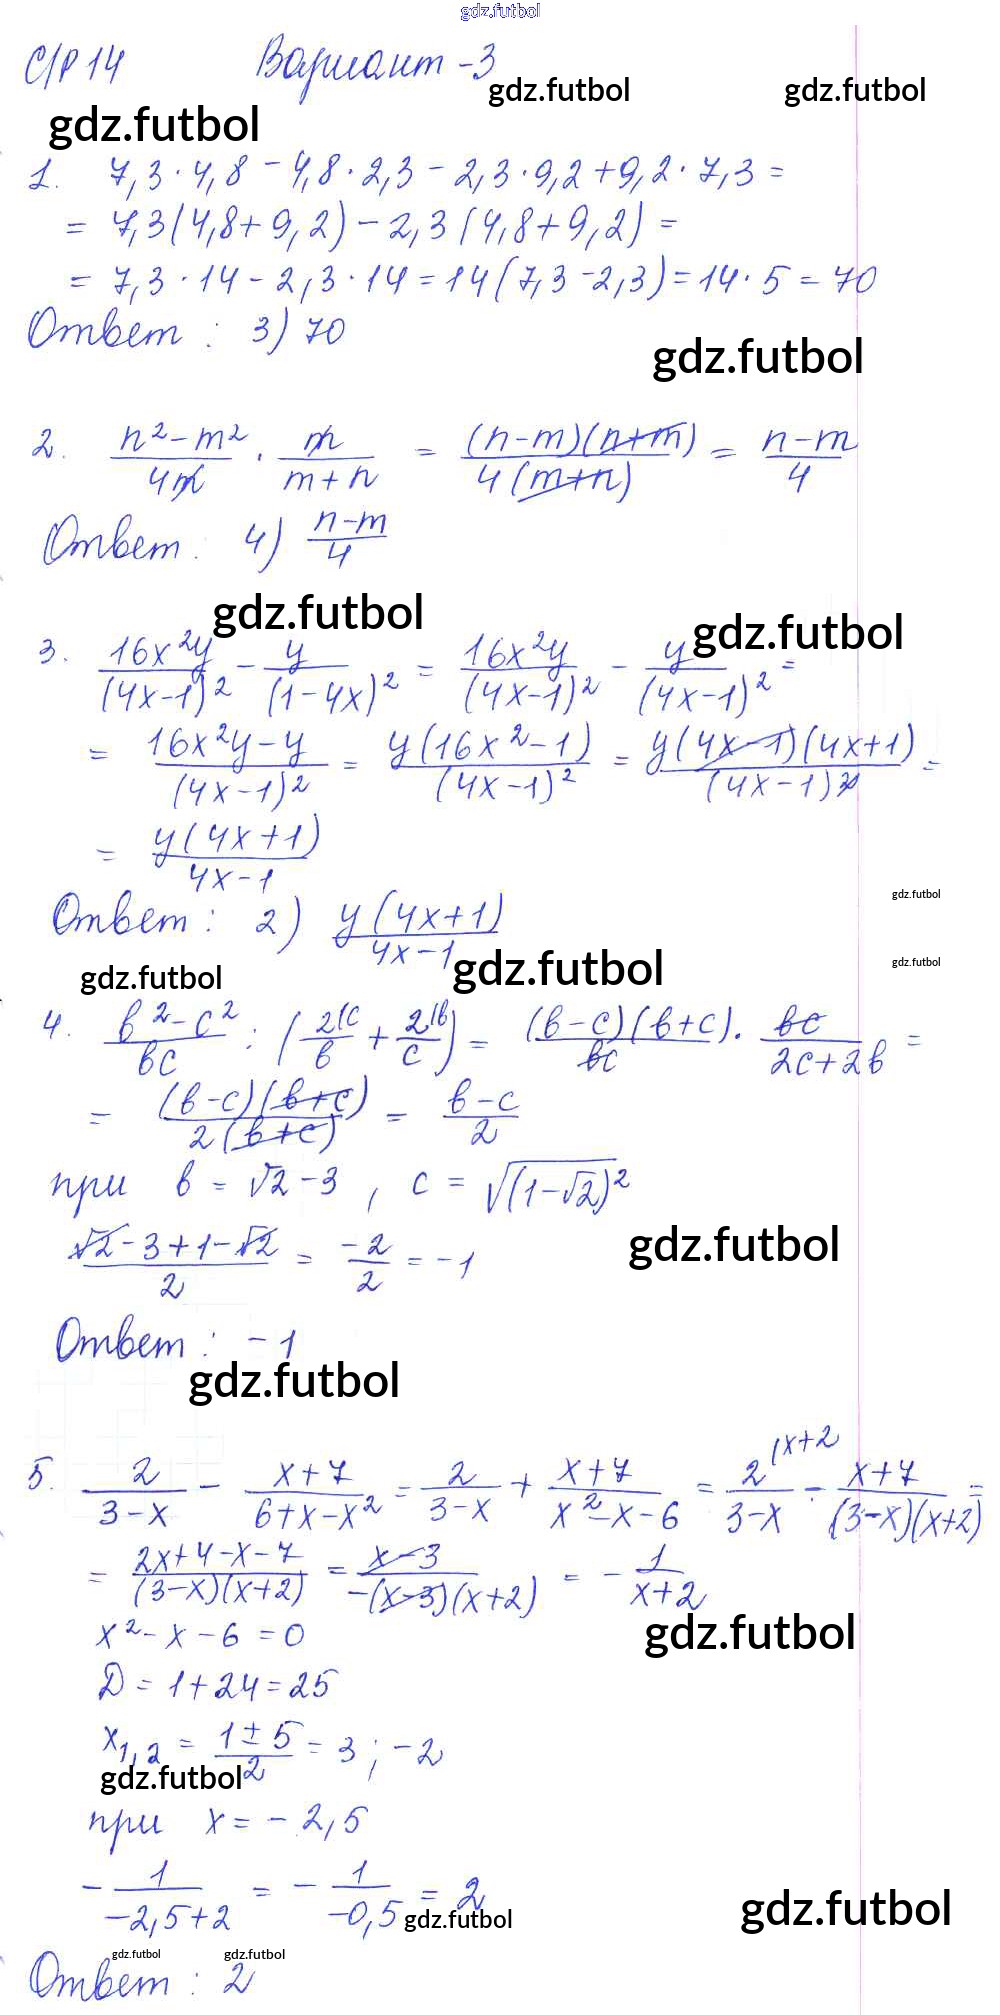 gdz.futbol
С/Р 14 Вариант -3
gdz.futbol gdz.futbol
gdz.futbol
1. 7,3 · 4,8 - 4,8 · 2,3 - 2,3 · 9,2 + 9,2 · 7,3 =
= 7,3(4,8 + 9,2) - 2,3(4,8 + 9,2) =
= 7,3 · 14 - 2,3 · 14 = 14(7,3 - 2,3) = 14 · 5 = 70
Ответ : 3) 70
gdz.futbol
2. (n² - m²)/(4m) · m/(m+n) = ((n-m)(n+m))/(4(m+n)) = (n-m)/4
Ответ : 4) (n-m)/4
gdz.futbol
gdz.futbol
3. 16x²y/(4x-1)² - y/(1-4x)² = 16x²y/(4x-1)² - y/(4x-1)² =
= (16x²y - y)/(4x-1)² = y(16x²-1)/(4x-1)² = y(4x-1)(4x+1)/(4x-1)² =
= y(4x+1)/(4x-1)
gdz.futbol
Ответ : 2) y(4x+1)/(4x-1)
gdz.futbol gdz.futbol gdz.futbol
4. (b²-c²)/(bc) : (2/b |c + 2/c |b) = (b-c)(b+c)/(bc) · bc/(2c+2b) =
= (b-c)(b+c)/(2(b+c)) = (b-c)/2
при b = √2 - 3 , c = √(1-√2)²
gdz.futbol
(√2 - 3 + 1 - √2)/2 = -2/2 = -1
Ответ : -1
gdz.futbol
5. 2/(3-x) - (x+7)/(6+x-x²) = 2/(3-x) + (x+7)/(x²-x-6) = 2/(3-x) |x+2 - (x+7)/((3-x)(x+2)) =
= (2x+4-x-7)/((3-x)(x+2)) = (x-3)/(-(x-3)(x+2)) = - 1/(x+2)
gdz.futbol
x² - x - 6 = 0
D = 1 + 24 = 25
x₁,₂ = (1 ± 5)/2 = 3 ; -2
gdz.futbol
при x = - 2,5
- 1/(-2,5+2) = - 1/(-0,5) = 2
gdz.futbol gdz.futbol
gdz.futbol gdz.futbol
Ответ : 2